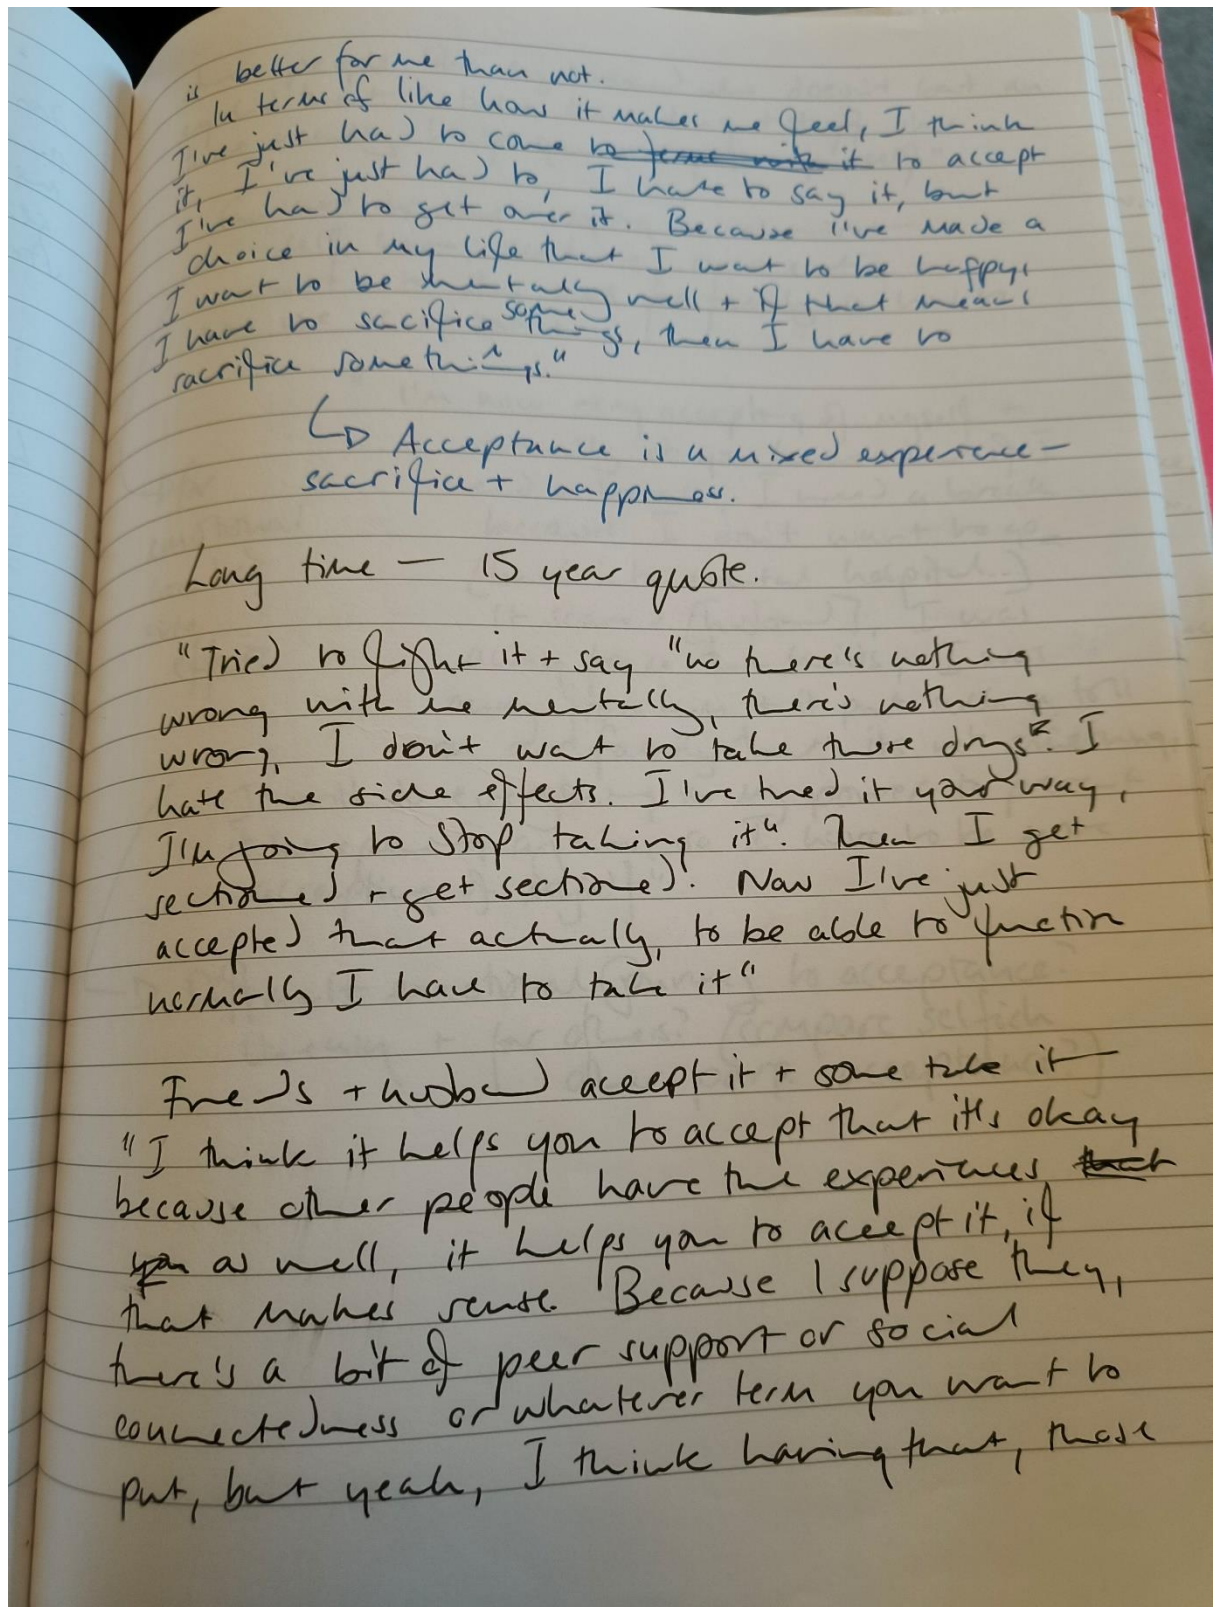 is better for me than not.
In terms of like how it makes me feel, I think
I've just had to come to terms with it to accept
it, I've just had to, I hate to say it, but
I've had to get over it. Because I've made a
choice in my life that I want to be happy,
I want to be mentally well + if that means
I have to sacifice some things, then I have to
sacrifice some things."
↳ Acceptance is a mixed experience -
sacrifice + happiness.
Long time - 15 year quote.
"Tried to fight it + say "no there's nothing
wrong with me mentally, there's nothing
wrong, I don't want to take these drugs". I
hate the side effects. I've tried it your way,
I'm going to stop taking it". Then I get
sectioned + get sectioned. Now I've just
accepted that actually, to be able to function
normally I have to take it"
Friends + husband accept it + some take it -
"I think it helps you to accept that it's okay
because other people have the experiences that
you as well, it helps you to accept it, if
that makes sense. Because I suppose they,
there's a bit of peer support or social
connectedness or whatever term you want to
put, but yeah, I think having that, those